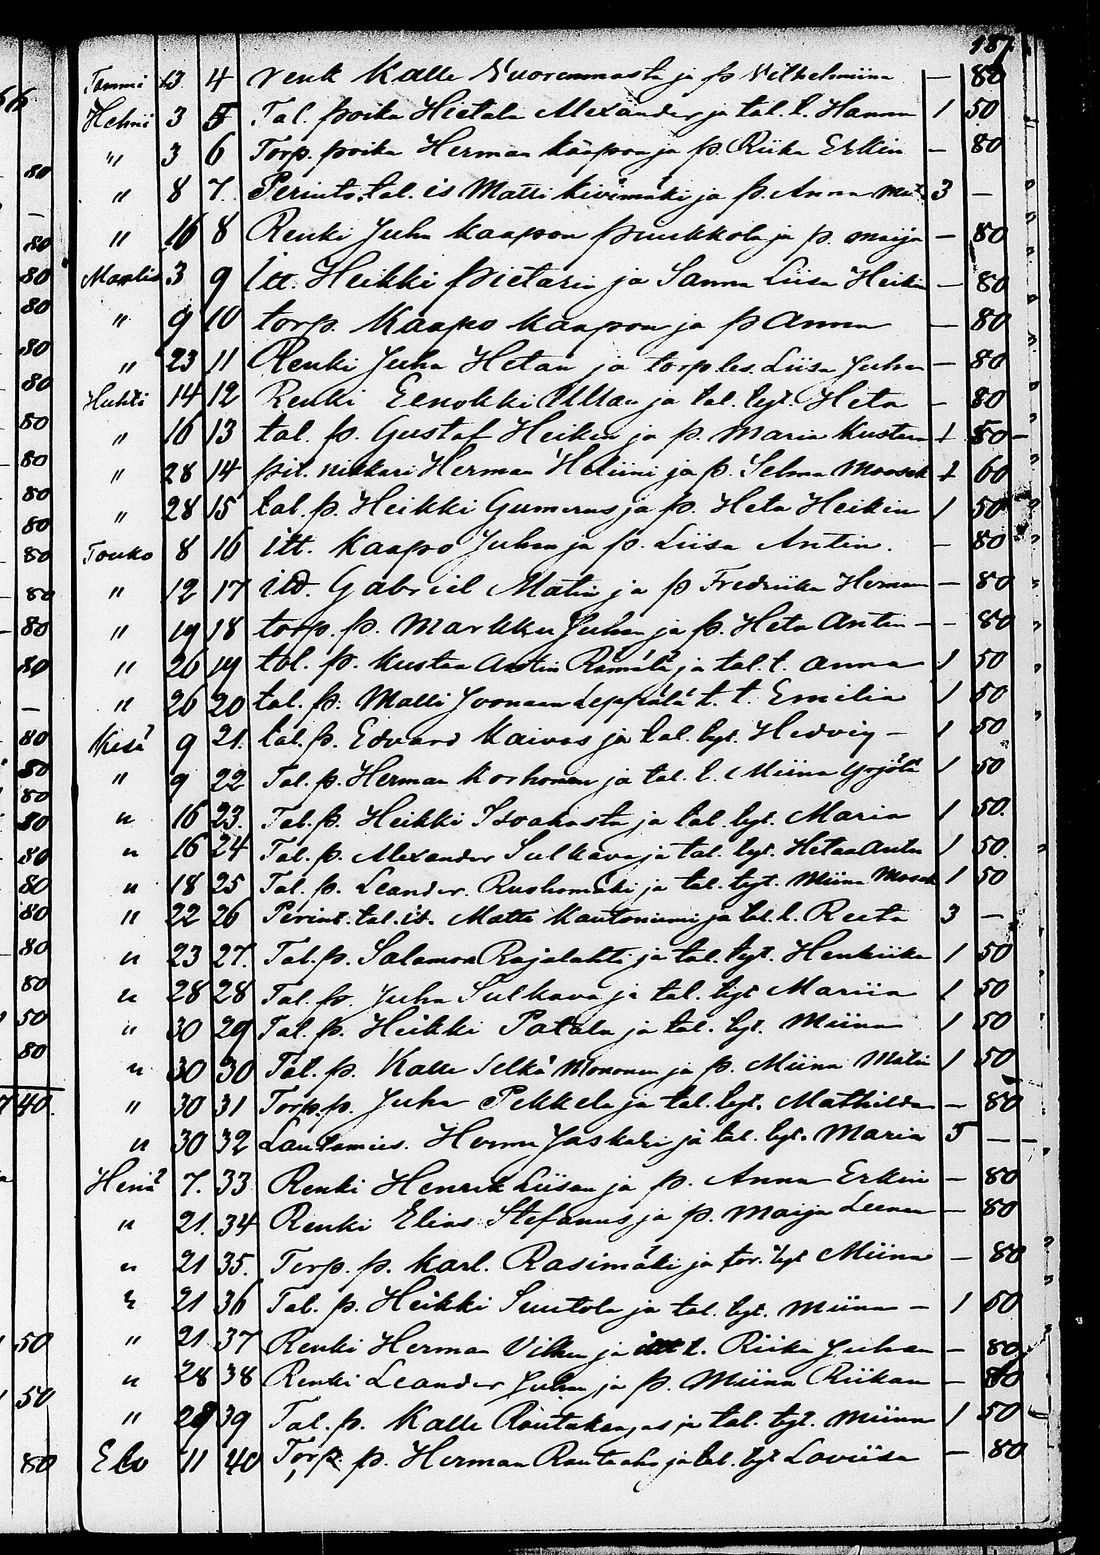 187.
Tammi 13. 4 renk Kalle Nuorenmasta ja þs Vilhelmiina — 80
Helmi 3 5 Tal. þoika Hietala Alexander ja tal. t. Hanna 1 50
" 3 6 Torp. þoika Herman Kaapon ja þ. Riika Erkin — 80
" 8 7. Perintö. tal. is Matti Kivimäki ja þ. Anna Mat. 3 —
" 16 8 Renki Juha Kaapon þuukkola ja þ. Maija — 80
Maalis 3 9 Itt. Heikki þietarin ja Sanna Liisa Heikin — 80
" 9 10 torp. Kaapo Kaapon ja þ Anna — 80
" 23 11 Renki Juha Hetan ja torp les. Liisa Juhan — 80
Huhti 14 12 Renki Eenokki Ullan ja tal. tyt. Heta — 80
" 16 13 tal. þ. Gustaf Heikin ja þ. Maria Kustan 1 50 —
" 28 14 pit. nikkari Herman Heliini ja þ. Selma 1 60
" 28 15 tal. þ. Heikki Gumerus ja þ. Heta Heikin 1 50
Touko 8 16 itt. Kaapo Juhan ja þ. Liisa Antin. — 80
" 12 17 itt. Gabriel Matin ja þ Fredriika Herman — 80
" 19 18 torp. þ. Markku Juhan ja þ. Heta Antin — 80
" 26 19 tal. þ. Kustaa Antin Rämälä ja tal. t. Anna 1 50
" 26 20 tal. þ. Matti Joonaan Leppälä t. t. Emilia 1 50
Kesä 9 21. tal. þ. Edvard Kaivos ja tal. tyt. Hedvig — 1 50
" 9 22 Tal. þ. Herman Korhonen ja tal. t. Miina Yrjölä 1 50
" 16 23. Tal. þ. Heikki Isoahosta ja tal. tyt. Maria 1 50.
" 16 24 Tal. þ. Alexander Sulkava ja tal. tyt. Hetaa Antin 1 50.
" 18 25 Tal. þ. Leander Rushomäki ja tal. tyt. Miina 1 50
" 22 26 Perint. tal. is. Matti Kautoniemi ja tal. t. Reeta 3 —
" 23 27. Tal. þ. Salamon Rajalahti ja tal. tyt. Henkriika 1 50
" 28 28 Tal. þ. Juha Sulkava ja tal. tyt Mariia 1 50
" 30 29 Tal. þ. Heikki Potala ja tal. tyt. Miina 1 50
" 30 30 Tal. þ. Kalle Selkä Mononen ja þ. Miina Matin 1 50
" 30 31 Torp. þ. Juha Pekkela ja tal. tyt. Mathilda — 80
" 30 32 Lautamies. Herman Jaskari ja tal. tyt. Maria 5 —
Heinä 7. 33 Renki Henrik Liisan ja þ. Anna Erkin — 80
" 21. 34 Renki Elias Stefanus ja þ. Maija Leenan — 80
" 21 35. Torp. þ. Karl. Rasimäki ja tor. tyt Miina — 80
" 21 36 Tal. þ. Heikki Suutola ja tal. tyt. Miina — 1 50
" 21 37 Renki Herman Vilhen ja t. Riika Juhan — 80
" 28 38 Renki Leander Juhan ja þ. Miina Riikan — 80
" 28 39 Tal. þ. Kalle Rautakangas ja tal. tyt. Miina 1 50
Elo 11 40 Torp. þ. Herman Rautaaho ja tal. tyt Loviisa — 80